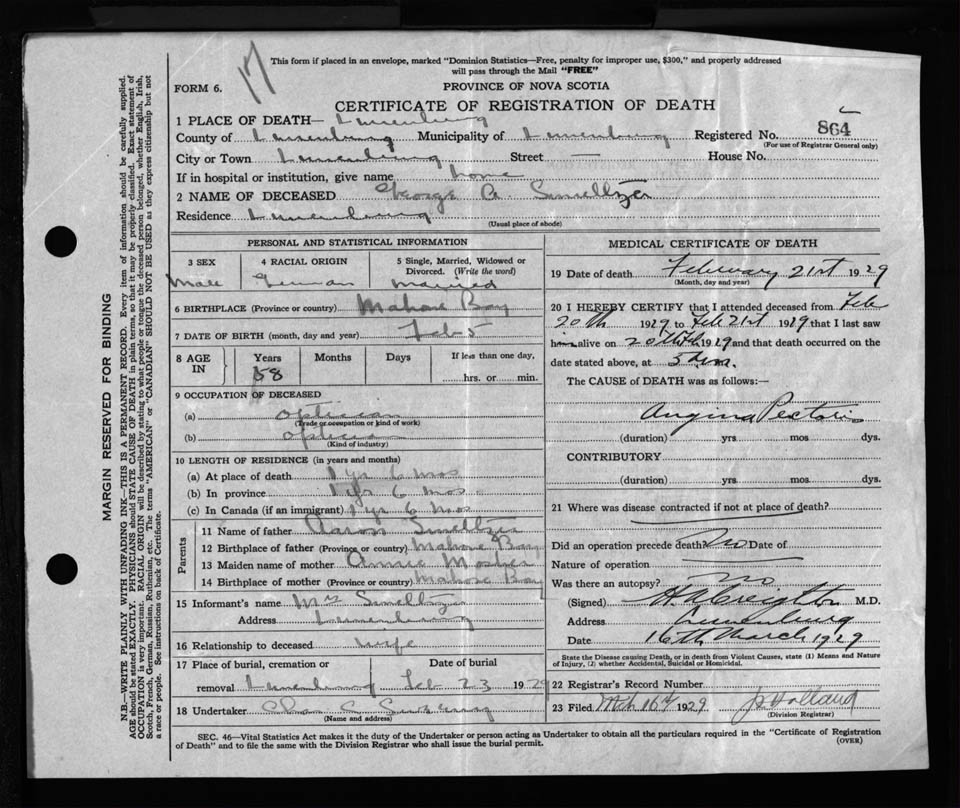 17
This form if placed in an envelope, marked "Dominion Statistics—Free, penalty for improper use, $300," and properly addressed
will pass through the Mail "FREE"
FORM 6.
PROVINCE OF NOVA SCOTIA
CERTIFICATE OF REGISTRATION OF DEATH
1 PLACE OF DEATH— Lunenburg
County of Lunenburg Municipality of Lunenburg Registered No. 864
(For use of Registrar General only)
City or Town Lunenburg Street — House No.
If in hospital or institution, give name home
2 NAME OF DECEASED George A. Smeltzer
Residence Lunenburg
(Usual place of abode)
PERSONAL AND STATISTICAL INFORMATION
3 SEX 4 RACIAL ORIGIN 5 Single, Married, Widowed or
Divorced. (Write the word)
Male German Married
6 BIRTHPLACE (Province or country) Mahone Bay
7 DATE OF BIRTH (month, day and year) Feb 5
8 AGE IN Years Months Days If less than one day,
58 hrs. or min.
9 OCCUPATION OF DECEASED
(a) Optician
(Trade or occupation or kind of work)
(b) Optician
(Kind of industry)
10 LENGTH OF RESIDENCE (in years and months)
(a) At place of death 1 yr 6 mos
(b) In province 1 yr 6 mos
(c) In Canada (if an immigrant) 1 yr 6 mos
Parents
11 Name of father Aaron Smeltzer
12 Birthplace of father (Province or country) Mahone Bay
13 Maiden name of mother Annie Mosher
14 Birthplace of mother (Province or country) Mahone Bay
15 Informant's name Mrs Smeltzer
Address Lunenburg
16 Relationship to deceased wife
17 Place of burial, cremation or Date of burial
removal Lunenburg Feb 23 1929
18 Undertaker Chas
(Name and address)
MEDICAL CERTIFICATE OF DEATH
19 Date of death February 21st 1929
(Month, day and year)
20 I HEREBY CERTIFY that I attended deceased from Feb
20th 1929 to Feb 21st 1929 that I last saw
him alive on 20th Feb 1929 and that death occurred on the
date stated above, at 5 a.m.
The CAUSE of DEATH was as follows:—
Angina Pectoris
(duration) yrs. mos dys.
CONTRIBUTORY
(duration) yrs. mos. dys.
21 Where was disease contracted if not at place of death?
Did an operation precede death? No Date of
Nature of operation
Was there an autopsy? no
(Signed) H A Creighton M.D.
Address Lunenburg
Date 16th March 1929
State the Disease causing Death, or in death from Violent Causes, state (1) Means and Nature
of Injury, (2) whether Accidental, Suicidal or Homicidal.
22 Registrar's Record Number
23 Filed Mch 16th 1929 Holland
(Division Registrar)
SEC. 46—Vital Statistics Act makes it the duty of the Undertaker or person acting as Undertaker to obtain all the particulars required in the "Certificate of Registration
of Death" and to file the same with the Division Registrar who shall issue the burial permit.
(OVER)
MARGIN RESERVED FOR BINDING
N.B.—WRITE PLAINLY WITH UNFADING INK—THIS IS A PERMANENT RECORD. Every item of information should be carefully supplied.
AGE should be stated EXACTLY. PHYSICIANS should STATE CAUSE OF DEATH in plain terms, so that it may be properly classified. Exact statement of
OCCUPATION is very important. RACIAL ORIGIN will be described by stating to what people or tongue the deceased person belonged, whether English, Irish,
Scotch, French, German, Russian, Ruthenian, etc. The terms "AMERICAN" or "CANADIAN" SHOULD NOT BE USED as they express citizenship but not
a race or people. See instructions on back of Certificate.